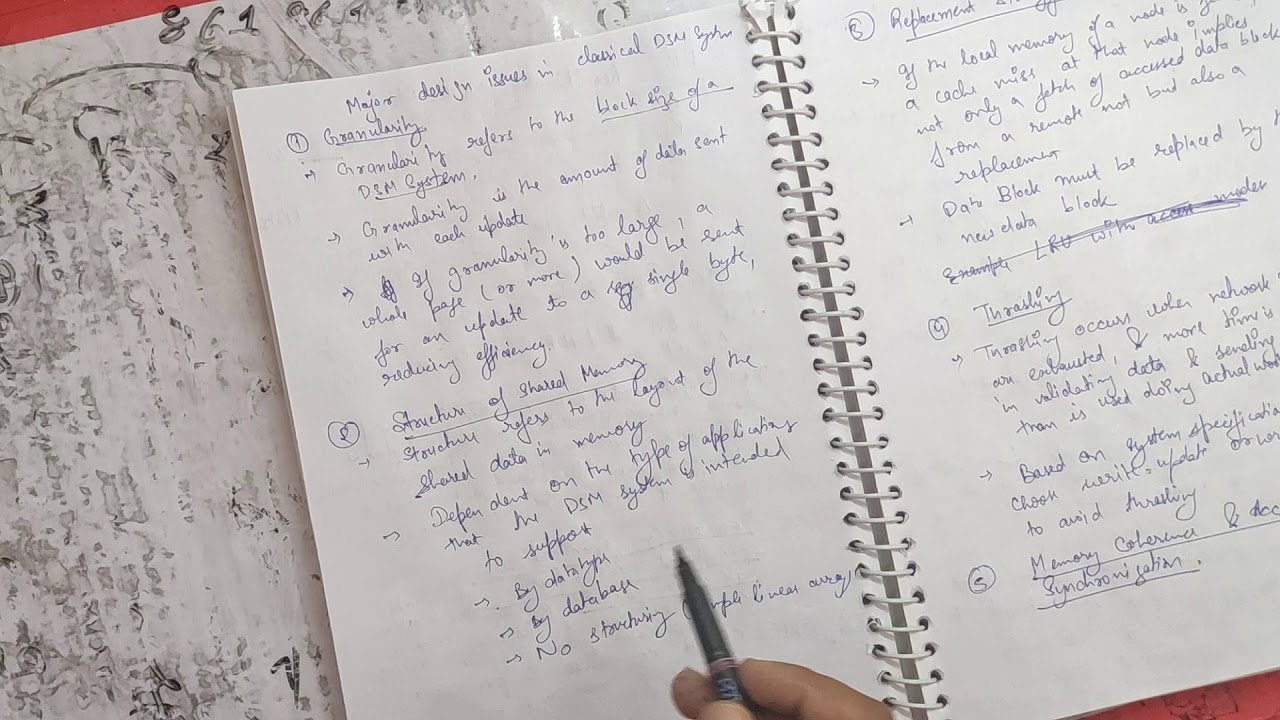 861
Major design issues in classical DSM System
① Granularity
→ Granularity refers to the block size of a
DSM System.
→ Granularity is the amount of data sent
with each update
→ If granularity is too large, a
whole page (or more) would be sent
for an update to a single byte,
reducing efficiency.
② Structure of Shared Memory
→ Structure refers to the layout of the
shared data in memory
→ Dependent on the type of applications
that the DSM system is intended
to support
→ By datatype
→ By database
→ No structuring linear array
③ Replacement
→ If the local memory of a node is
a cache miss at that node implies
not only a fetch of accessed data block
from a remote not but also a
replacement
→ Data Block must be replaced by
new data block
Example LRU with access modes
④ Thrashing
→ Thrashing occurs when network
an exhausted, & more time is
in validating data & sending
than is used doing actual
→ Based on system specification
choos write-update or
to avoid thrashing
⑤ Memory Coherence &
Synchronization.